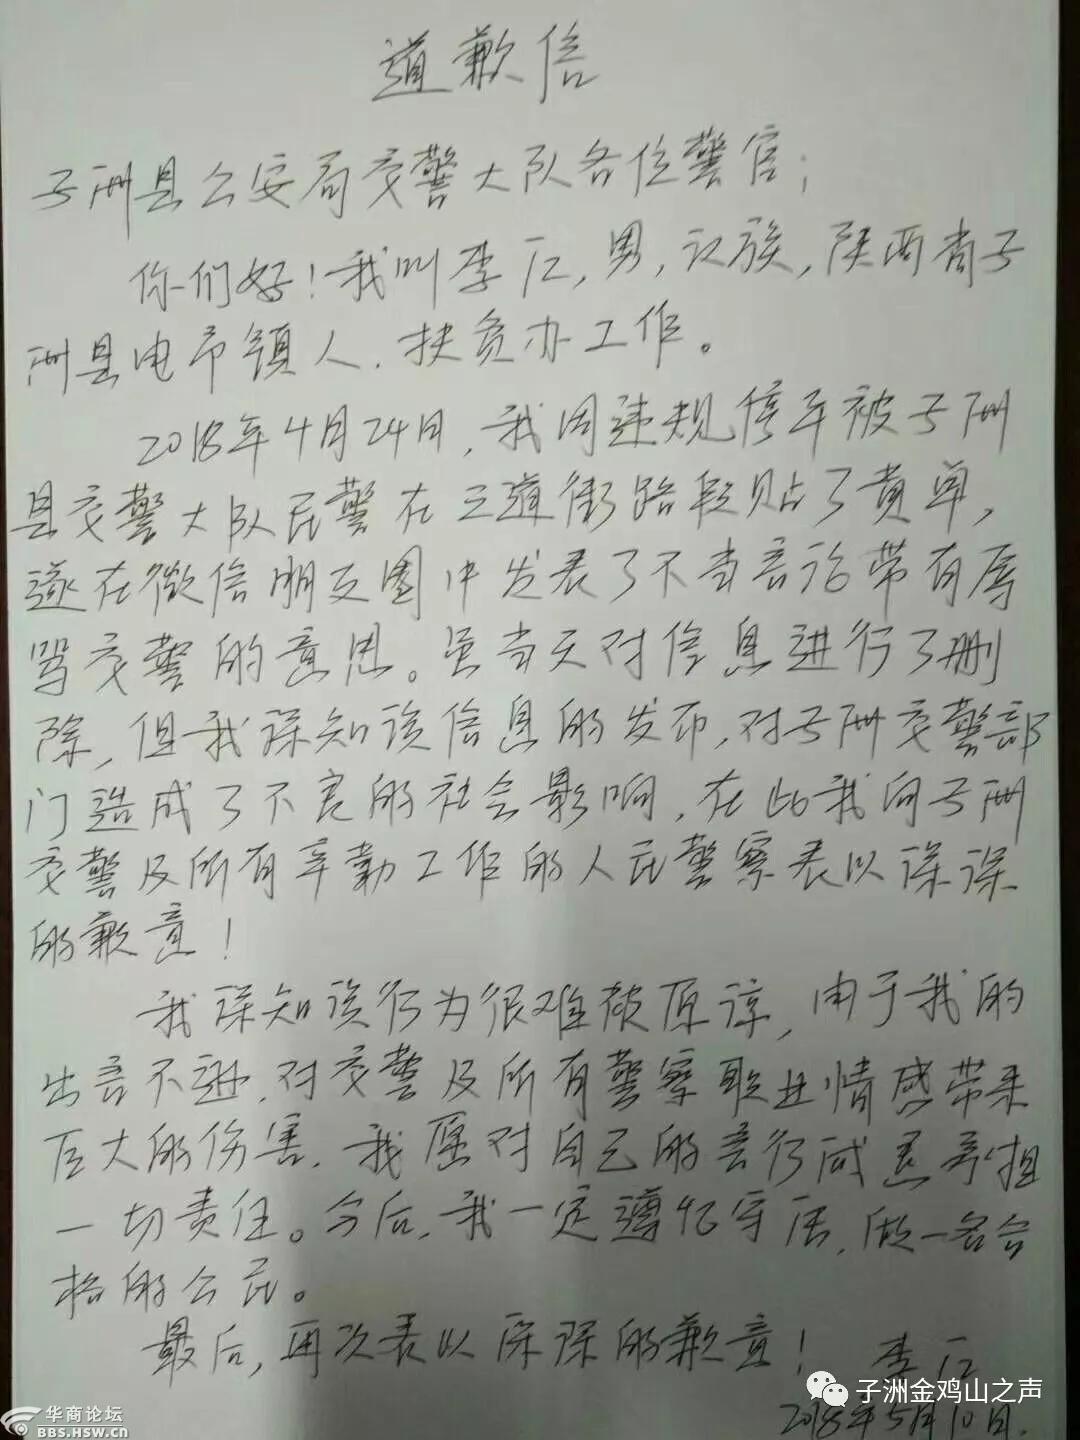 道歉信
子洲县公安局交警大队各位警官：
你们好！我叫李江，男，汉族，陕西省子
洲县电市镇人，扶贫办工作。
2018年4月24日，我因违规停车被子洲
县交警大队民警在三道街路段贴了黄单，
遂在微信朋友圈中发表了不当言论带有辱
骂交警的意思。虽当天对信息进行了删
除，但我深知该信息的发布，对子洲交警部
门造成了不良的社会影响，在此我向子洲
交警及所有辛勤工作的人民警察表以深深
的歉意！
我深知该行为很难被原谅，由于我的
出言不逊，对交警及所有警察职业情感带来
巨大的伤害，我愿对自己的言行 承担
一切责任。今后，我一定遵纪守法，做一名合
格的公民。
最后，再次表以深深的歉意！
李江
2018年5月10日.
子洲金鸡山之声
华商论坛
BBS.HSW.CN